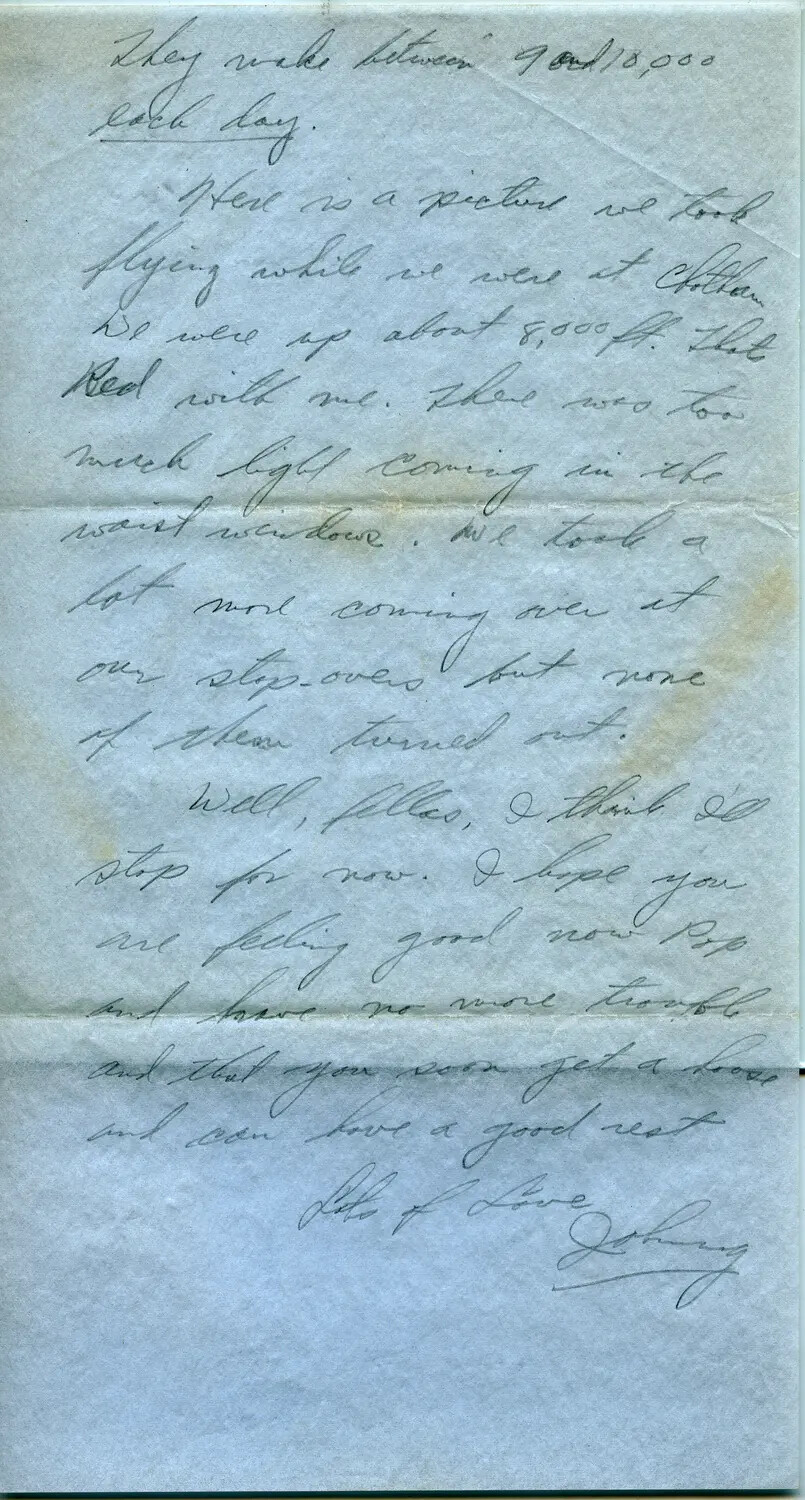 They make between 9 and 10,000
each day.
Here is a picture we took
flying while we were at Chatham
We were up about 8,000 ft. Thats
Red with me. There was too
much light coming in the
waist windows. We took a
lot more coming over at
our stop-overs but none
of them turned out.
Well, fellas, I think I'll
stop for now. I hope you
are feeling good now Pop
and have no more trouble
and that you soon get a house
and can have a good rest
Lots of Love
Johnny